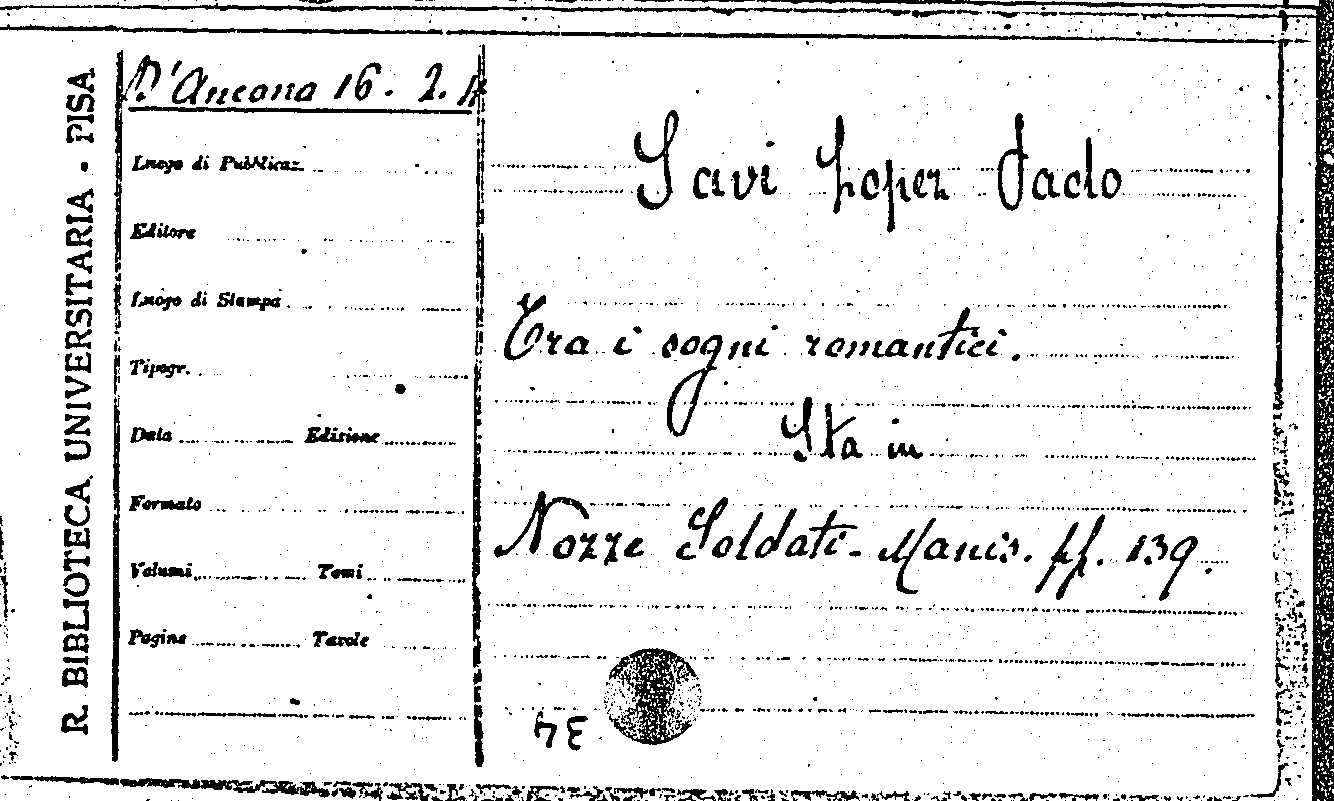 R. BIBLIOTECA UNIVERSITARIA - PISA
D'Ancona 16. 2. 4
Luogo di Pubblicaz.
Editore
Luogo di Stampa
Tipogr.
Data Edizione
Formato
Volumi Tomi
Pagine Tavole
Savi Lopez Paolo
Tra i sogni romantici.
Sta in
Nozze Soldati - Manis. pp. 139.
34